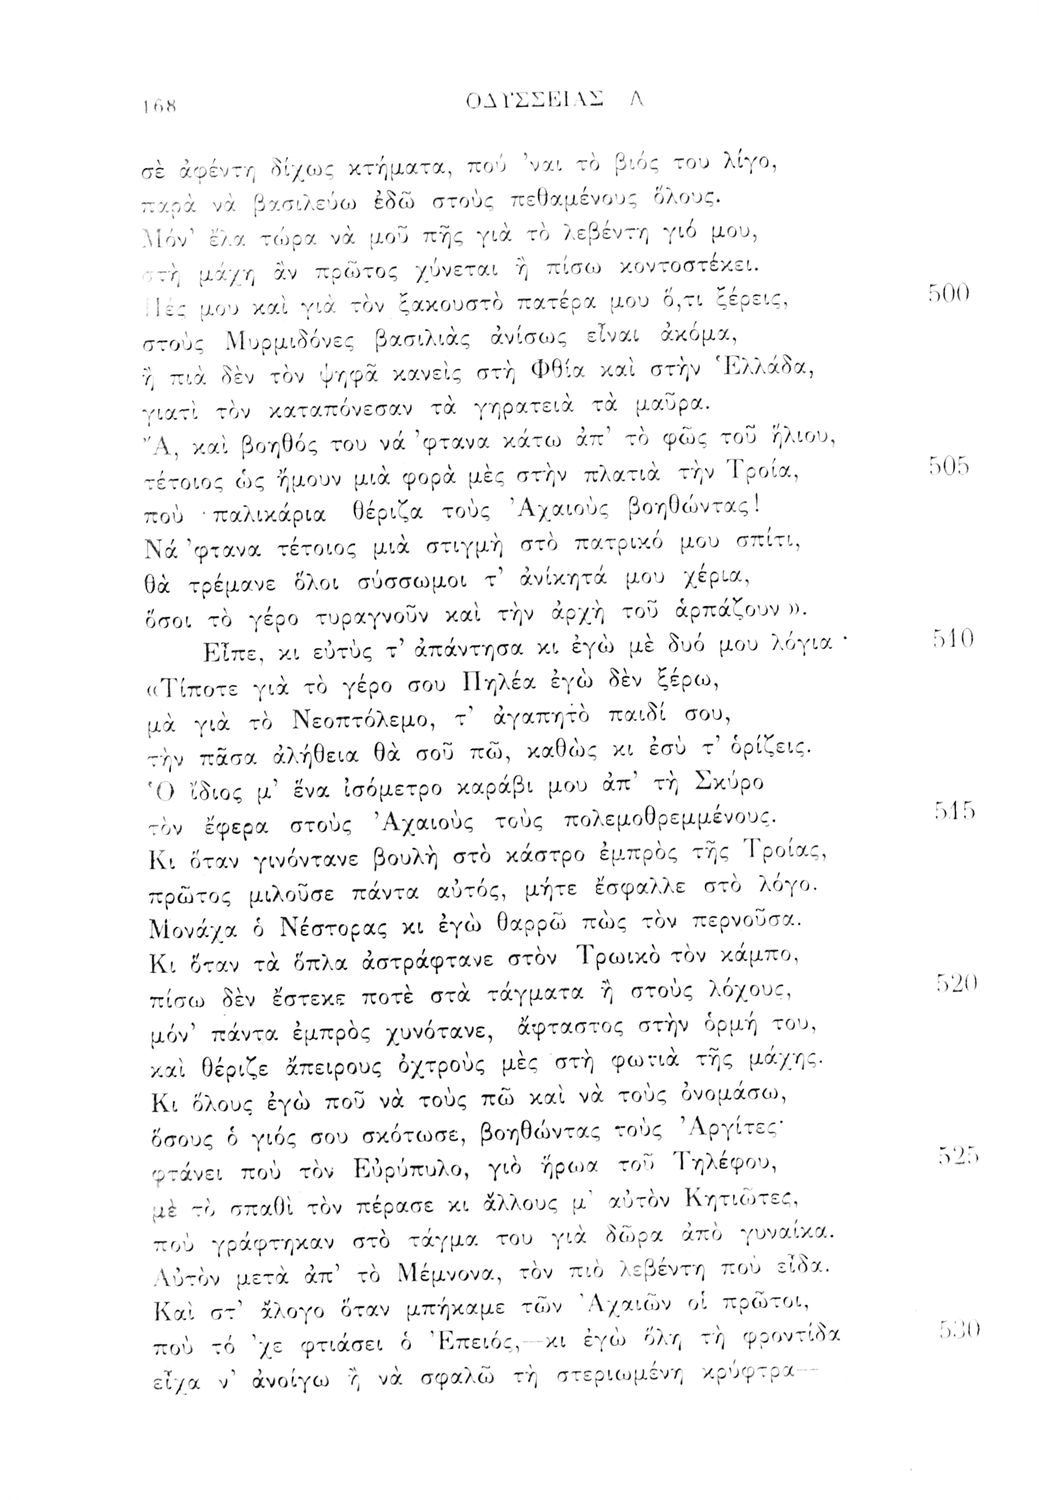 168 ΟΔΥΣΣΕΙΑΣ Λ
σὲ ἀφέντη δίχως κτήματα, ποὺ ’ναι τὸ βιός του λίγο,
παρὰ νὰ βασιλεύω ἐδῶ στοὺς πεθαμένους ὅλους.
Μόν’ ἔλα τώρα νὰ μοῦ πῆς γιὰ τὸ λεβέντη γιό μου,
στὴ μάχη ἂν πρῶτος χύνεται ἢ πίσω κοντοστέκει.
Πές μου καὶ γιὰ τὸν ξακουστὸ πατέρα μου ὅ,τι ξέρεις, 500
στοὺς Μυρμιδόνες βασιλιὰς ἀνίσως εἶναι ἀκόμα,
ἢ πιὰ δὲν τὸν ψηφᾶ κανεὶς στὴ Φθία καὶ στὴν Ἑλλάδα,
γιατὶ τὸν καταπόνεσαν τὰ γηρατειὰ τὰ μαῦρα.
Ἄ, καὶ βοηθός του νά ’φτανα κάτω ἀπ’ τὸ φῶς τοῦ ἥλιου,
τέτοιος ὡς ἤμουν μιὰ φορὰ μὲς στὴν πλατιὰ τὴν Τροία, 505
ποὺ παλικάρια θέριζα τοὺς Ἀχαιοὺς βοηθώντας!
Νά ’φτανα τέτοιος μιὰ στιγμὴ στὸ πατρικό μου σπίτι,
θὰ τρέμανε ὅλοι σύσσωμοι τ’ ἀνίκητά μου χέρια,
ὅσοι τὸ γέρο τυραγνοῦν καὶ τὴν ἀρχὴ τοῦ ἁρπάζουν».
Εἶπε, κι εὐτὺς τ’ ἀπάντησα κι ἐγὼ μὲ δυό μου λόγια· 510
«Τίποτε γιὰ τὸ γέρο σου Πηλέα ἐγὼ δὲν ξέρω,
μὰ γιὰ τὸ Νεοπτόλεμο, τ’ ἀγαπητὸ παιδί σου,
τὴν πᾶσα ἀλήθεια θὰ σοῦ πῶ, καθὼς κι ἐσὺ τ’ ὁρίζεις.
Ὁ ἴδιος μ’ ἕνα ἰσόμετρο καράβι μου ἀπ’ τὴ Σκύρο
τὸν ἔφερα στοὺς Ἀχαιοὺς τοὺς πολεμοθρεμμένους. 515
Κι ὅταν γινόντανε βουλὴ στὸ κάστρο ἐμπρὸς τῆς Τροίας,
πρῶτος μιλοῦσε πάντα αὐτός, μήτε ἔσφαλλε στὸ λόγο.
Μονάχα ὁ Νέστορας κι ἐγὼ θαρρῶ πὼς τὸν περνοῦσα.
Κι ὅταν τὰ ὅπλα ἀστράφτανε στὸν Τρωικὸ τὸν κάμπο,
πίσω δὲν ἔστεκε ποτὲ στὰ τάγματα ἢ στοὺς λόχους, 520
μόν’ πάντα ἐμπρὸς χυνότανε, ἄφταστος στὴν ὁρμή του,
καὶ θέριζε ἄπειρους ὀχτροὺς μὲς στὴ φωτιὰ τῆς μάχης.
Κι ὅλους ἐγὼ ποῦ νὰ τοὺς πῶ καὶ νὰ τοὺς ὀνομάσω,
ὅσους ὁ γιός σου σκότωσε, βοηθώντας τοὺς Ἀργίτες·
φτάνει ποὺ τὸν Εὐρύπυλο, γιὸ ἥρωα τοῦ Τηλέφου, 525
μὲ τὸ σπαθὶ τὸν πέρασε κι ἄλλους μ’ αὐτὸν Κητιῶτες,
ποὺ γράφτηκαν στὸ τάγμα του γιὰ δῶρα ἀπὸ γυναίκα.
Αὐτὸν μετὰ ἀπ’ τὸ Μέμνονα, τὸν πιὸ λεβέντη ποὺ εἶδα.
Καὶ στ’ ἄλογο ὅταν μπήκαμε τῶν Ἀχαιῶν οἱ πρῶτοι,
ποὺ τό ’χε φτιάσει ὁ Ἐπειός,—κι ἐγὼ ὅλη τὴ φροντίδα 530
εἶχα ν’ ἀνοίγω ἢ νὰ σφαλῶ τὴ στεριωμένη κρύφτρα—